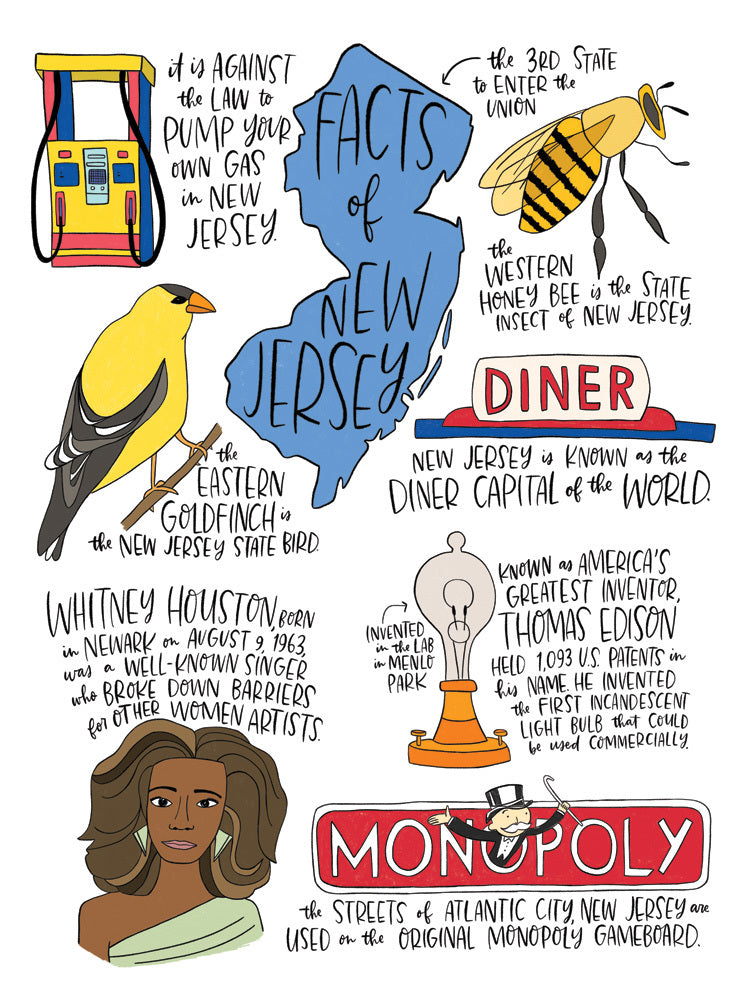 it is AGAINST
the LAW to
PUMP YOUR
OWN GAS
in NEW
JERSEY.
FACTS
of
NEW
JERSEY
the 3RD STATE
to ENTER the
UNION
the
WESTERN
HONEY BEE is the STATE
INSECT of NEW JERSEY.
the
EASTERN
GOLDFINCH is
the NEW JERSEY STATE BIRD.
DINER
NEW JERSEY is KNOWN as the
DINER CAPITAL of the WORLD.
WHITNEY HOUSTON, BORN
in NEWARK on AUGUST 9, 1963,
was a WELL-KNOWN SINGER
who BROKE DOWN BARRIERS
for OTHER WOMEN ARTISTS.
INVENTED
in the LAB
in MENLO
PARK
KNOWN as AMERICA'S
GREATEST INVENTOR,
THOMAS EDISON
HELD 1,093 U.S. PATENTS in
his NAME. HE INVENTED
the FIRST INCANDESCENT
LIGHT BULB that COULD
be used COMMERCIALLY.
MONOPOLY
the STREETS of ATLANTIC CITY, NEW JERSEY are
USED on the ORIGINAL MONOPOLY GAMEBOARD.